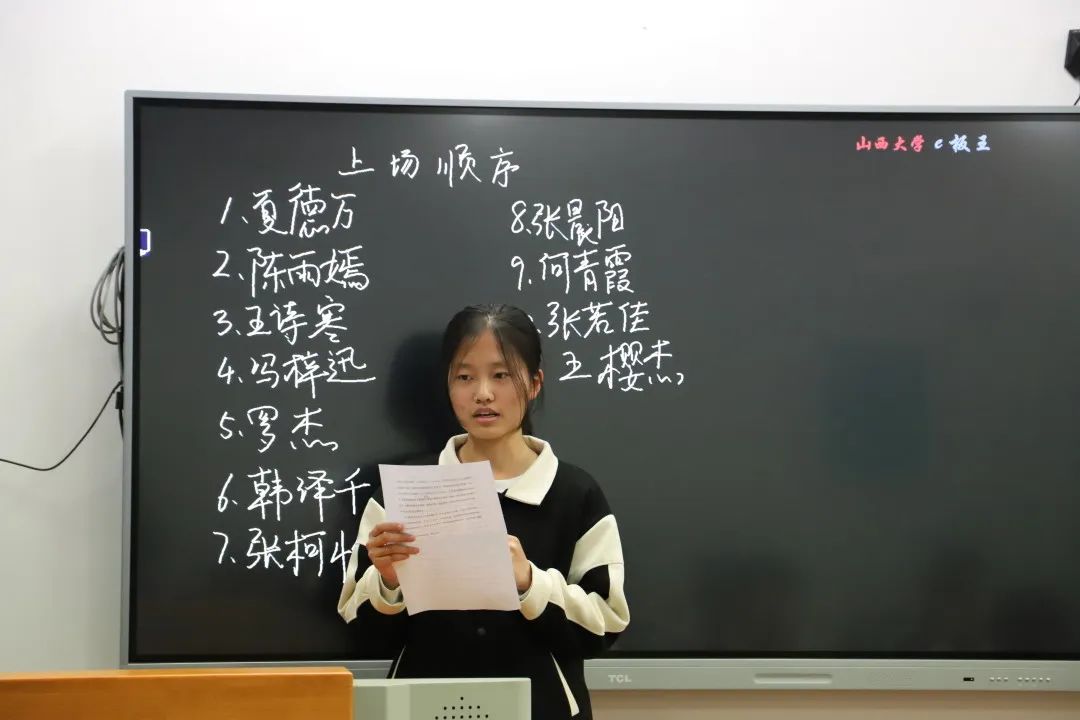 山西大学 e 板王
上场顺序
1、夏德万
2、陈雨嫣
3、王诗寒
4、冯梓迅
5、罗杰
6、韩泽千
7、张柯
8、张晨阳
9、何青霞
张若佳
王樱杰
TCL